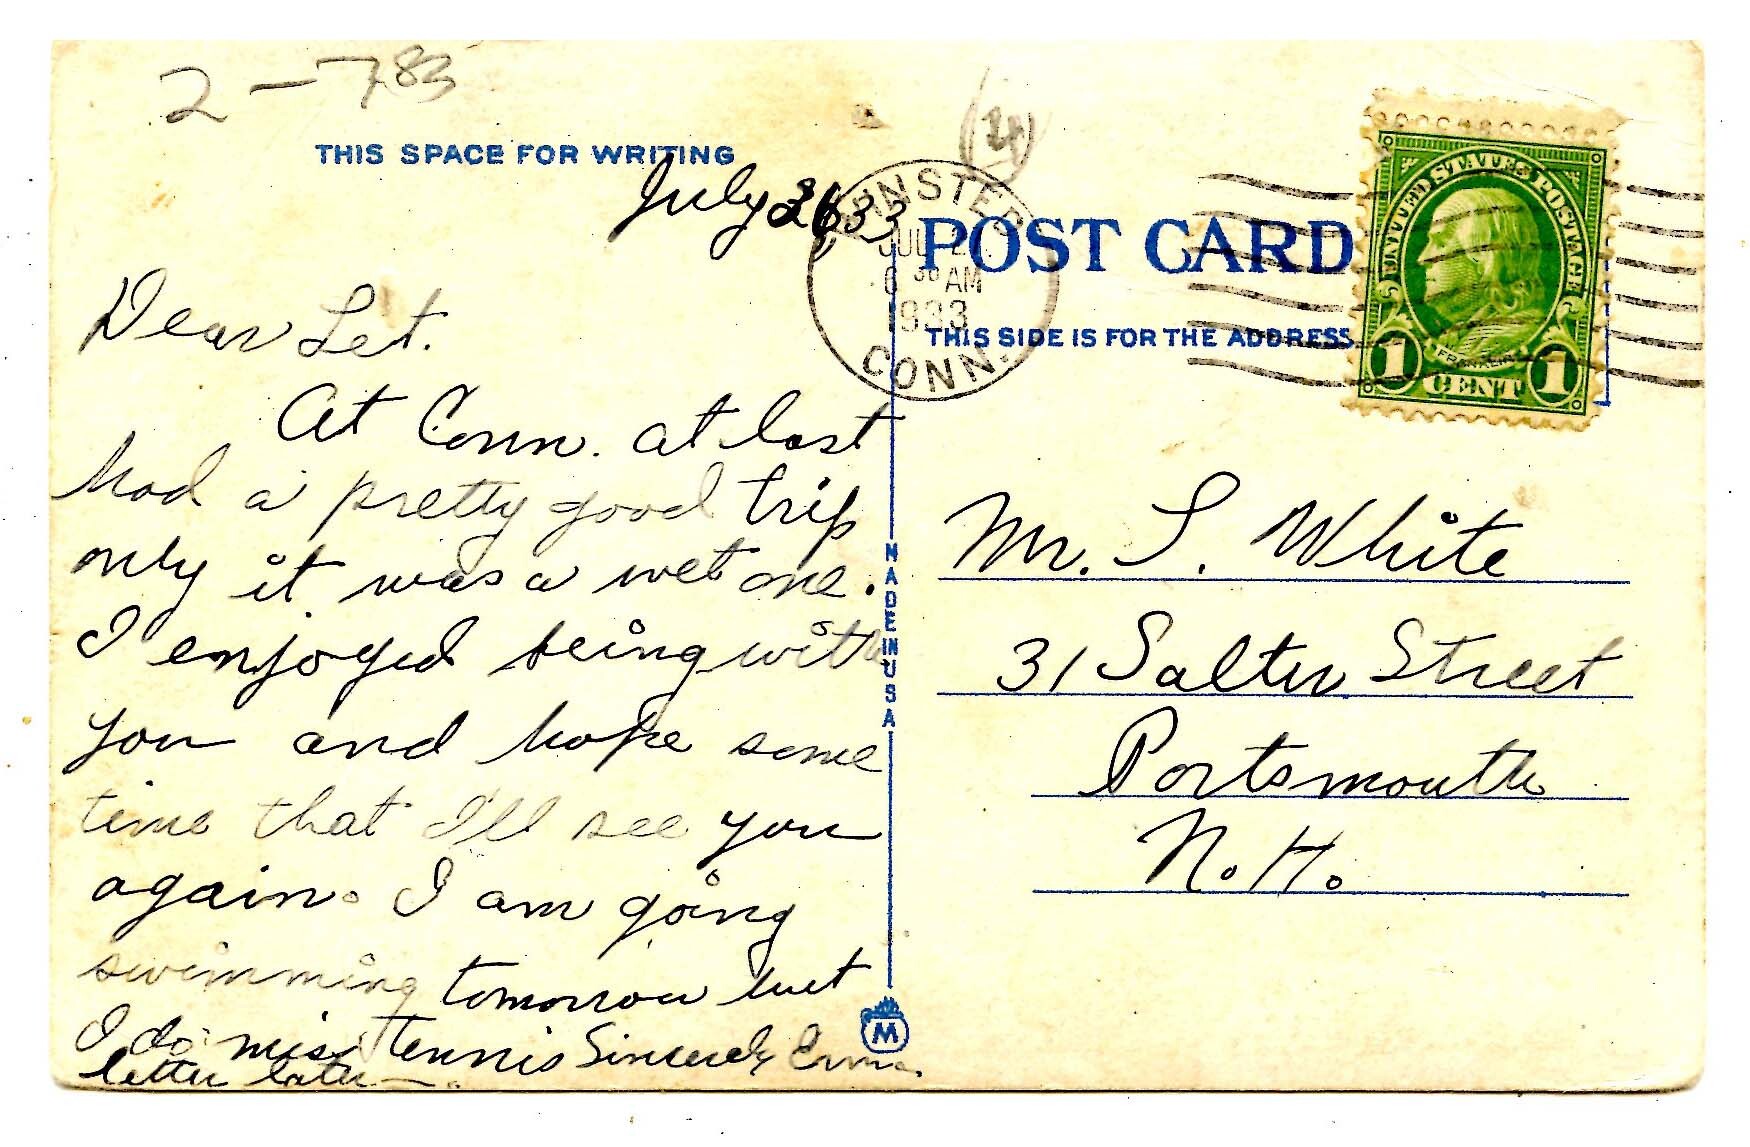 2-783
(4)
THIS SPACE FOR WRITING
July 26 33
MINSTER
JUL 2
6 30 AM
1933
CONN.
POST CARD
THIS SIDE IS FOR THE ADDRESS
UNITED STATES POSTAGE
FRANKLIN
1 CENT 1
Dear Let.
At Conn. at last
Had a pretty good trip
only it was a wet one.
I enjoyed being with
you and hope some
time that I'll see you
again. I am going
swimming tomorrow but
I do miss tennis Sincerely
letter later
MADE IN USA
M
Mr. S. White
31 Salter Street
Portsmouth
N. H.